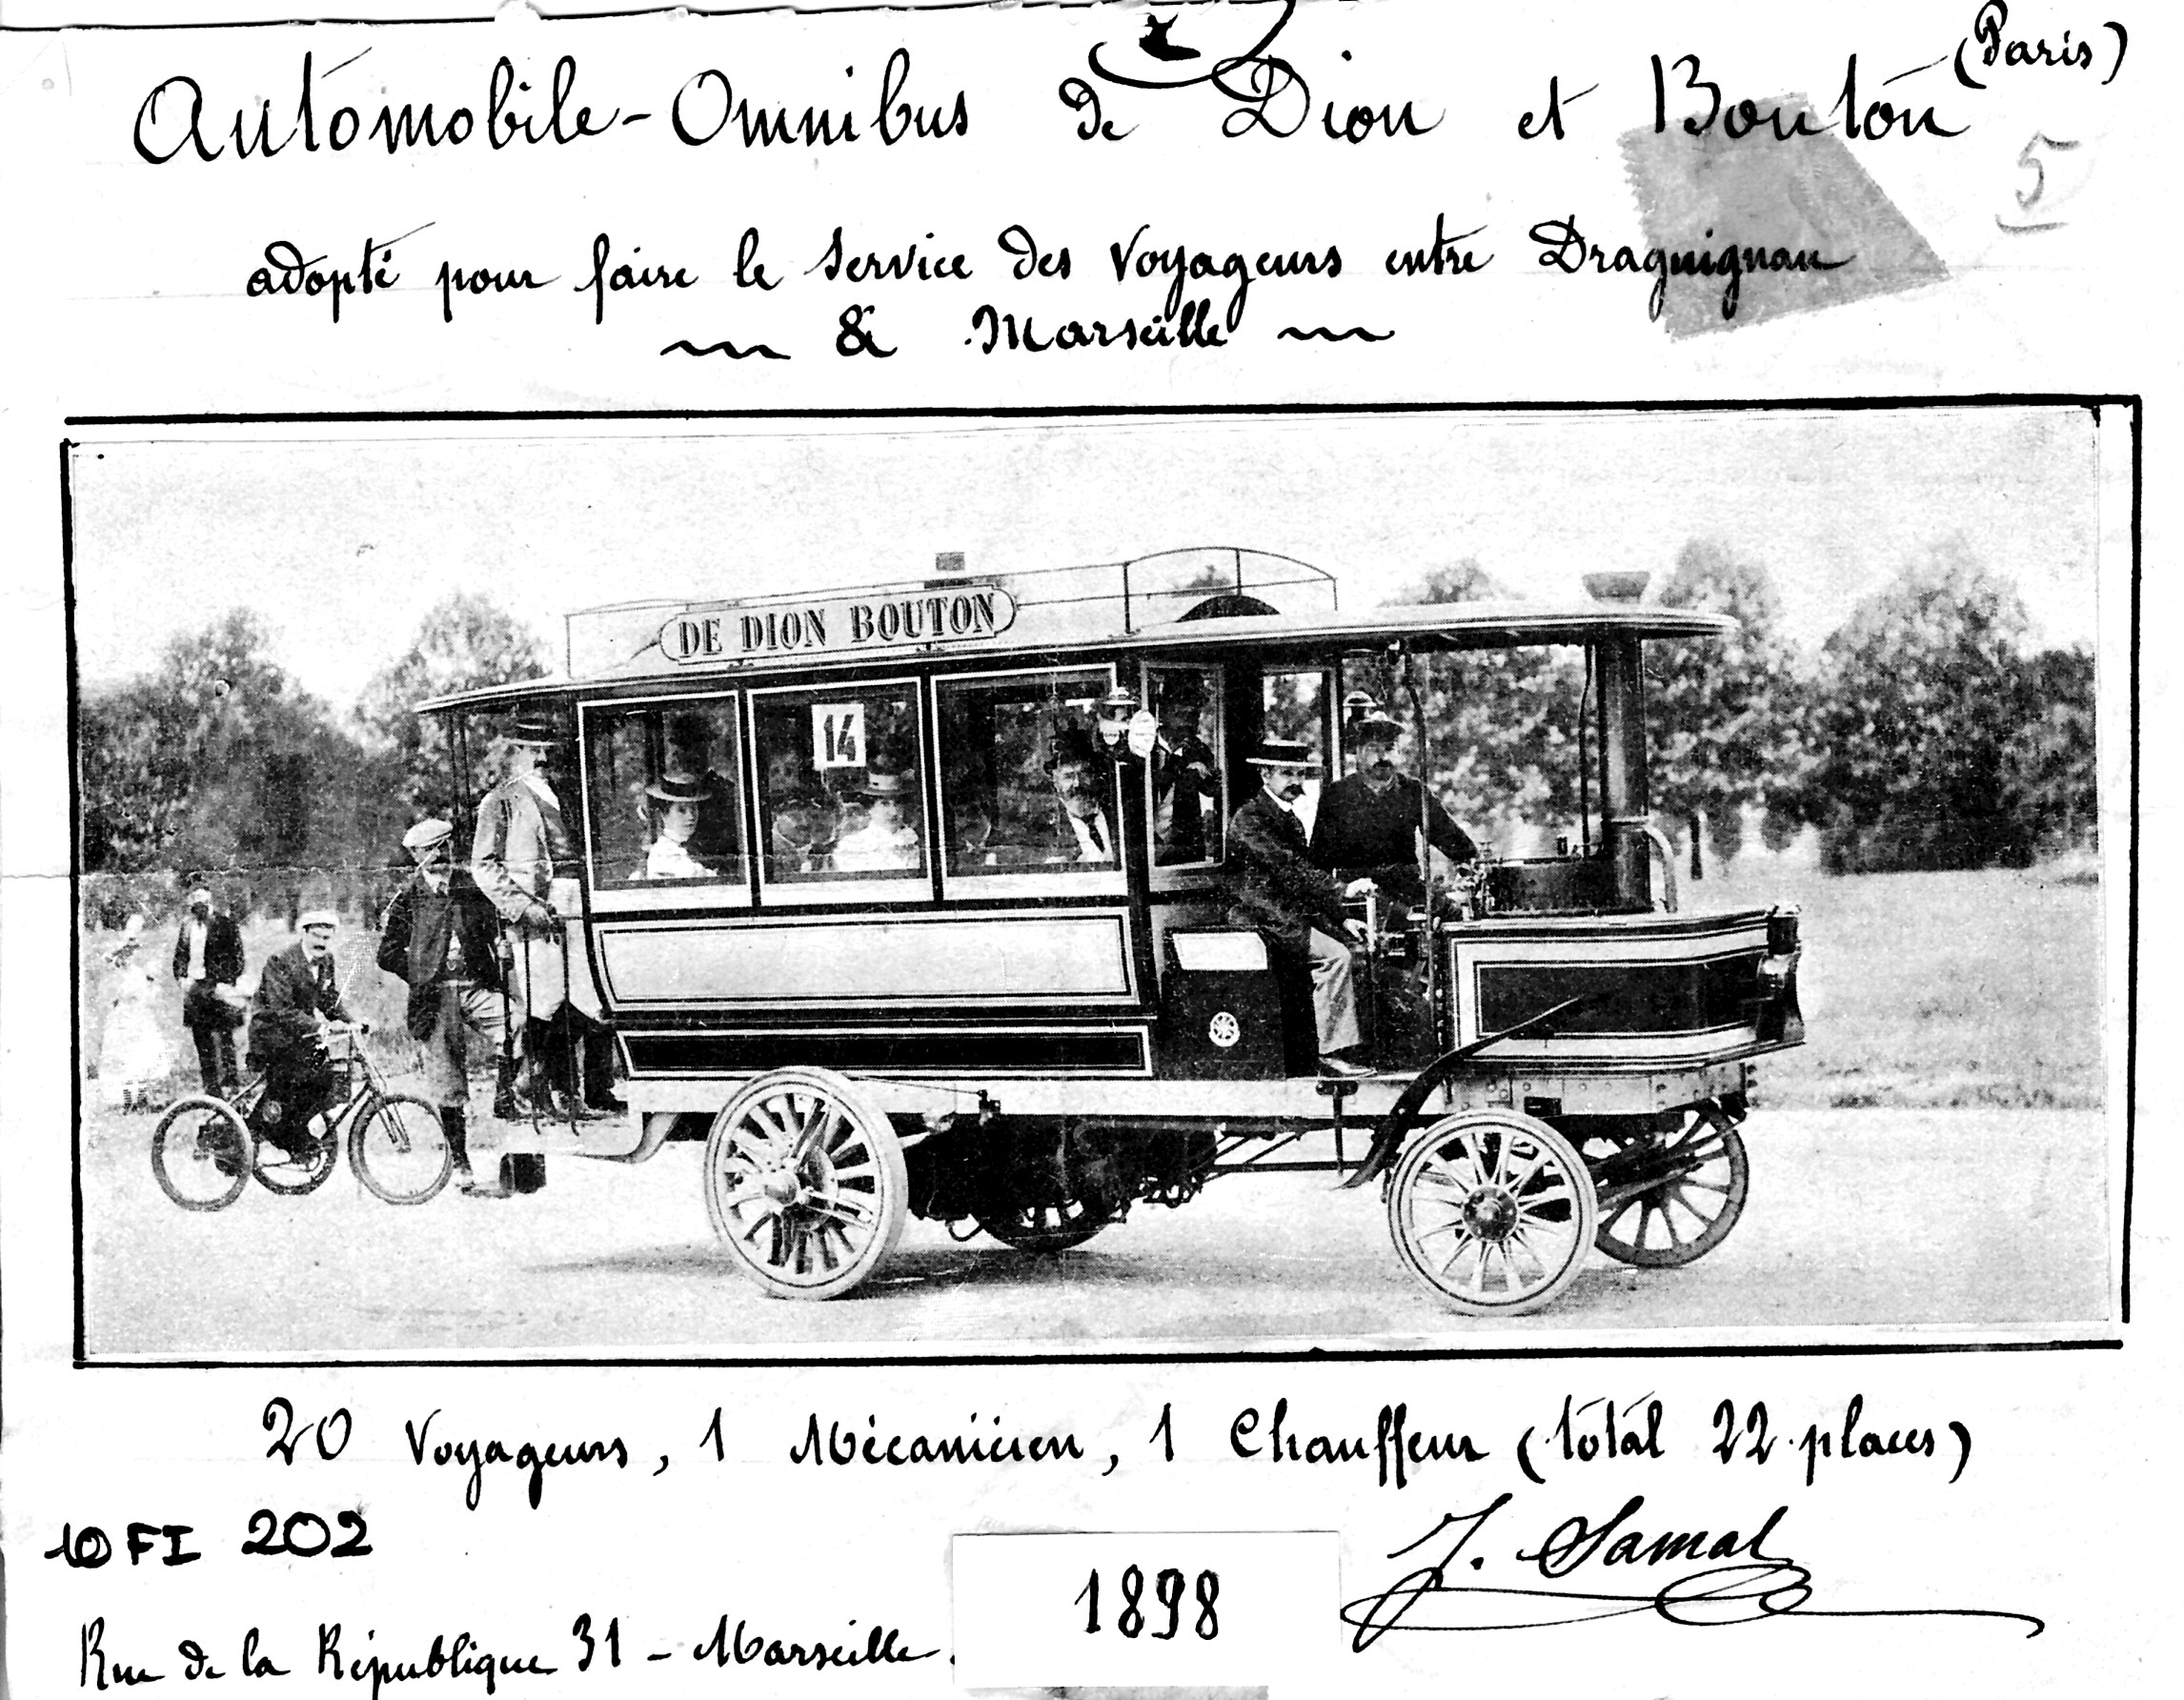 Automobile-Omnibus de Dion et Bouton (Paris)
5
adopté pour faire le service des voyageurs entre Draguignan
& Marseille
DE DION BOUTON
14
20 Voyageurs, 1 Mécanicien, 1 Chauffeur (total 22 places)
10 FI 202
J. Samat
1898
Rue de la République 31 - Marseille.